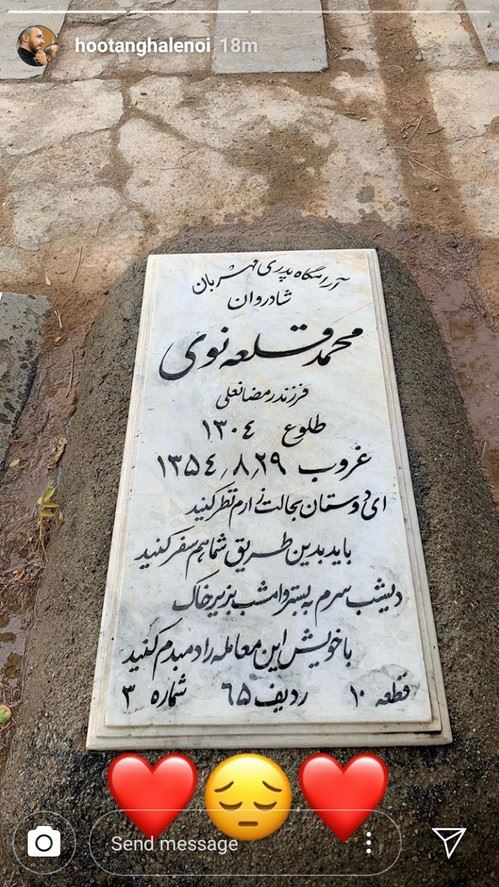 hootanghalenoi 18m
آرامگاه پدری مهربان
شادروان
محمد قلعه نوی
فرزند رمضانعلی
طلوع ۱۳۰۴
غروب ۱۳۵۴٫۸٫۲۹
ای دوستان بحالت زارم نظر کنید
باید بدین طریق شما هم سفر کنید
دیشب سرم به بستر و امشب بزیر خاک
با خویش این معامله را دمبدم کنید
قطعه ۱۰ ردیف ۶۵ شماره ۳
Send message